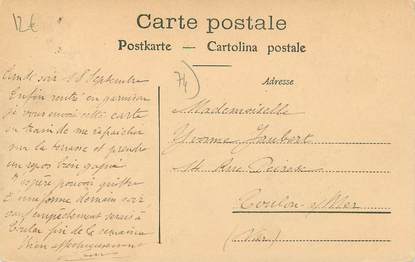 12€
Carte postale
Postkarte — Cartolina postale
74
Adresse
Lundi soir 18 Septembre
Enfin rentré en garnison
je vous envoie cette carte
en train de me rafraichir
sur la terrasse et prendre
un repos bien gagné
J'espère pouvoir quitter
l'uniforme demain soir
sauf empêchement serais à
Toulon fin de la semaine
Bien affectueusement
Mademoiselle
Yvonne Jaubert
Rue Peiresc
Toulon s/Mer
(Var)